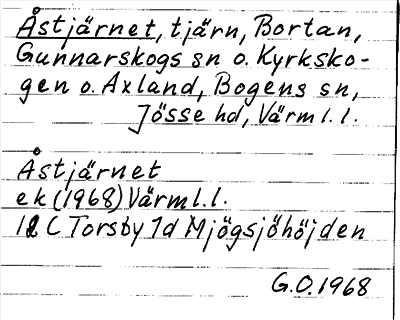 Åstjärnet, tjärn, Bortan,
Gunnarskogs sn o. Kyrksko-
gen o. Axland, Bogens sn,
Jösse hd, Värml. l.
Åstjärnet
ek (1968) Värml. l.
12 C Torsby 7d Mjögsjöhöjden
G.O. 1968